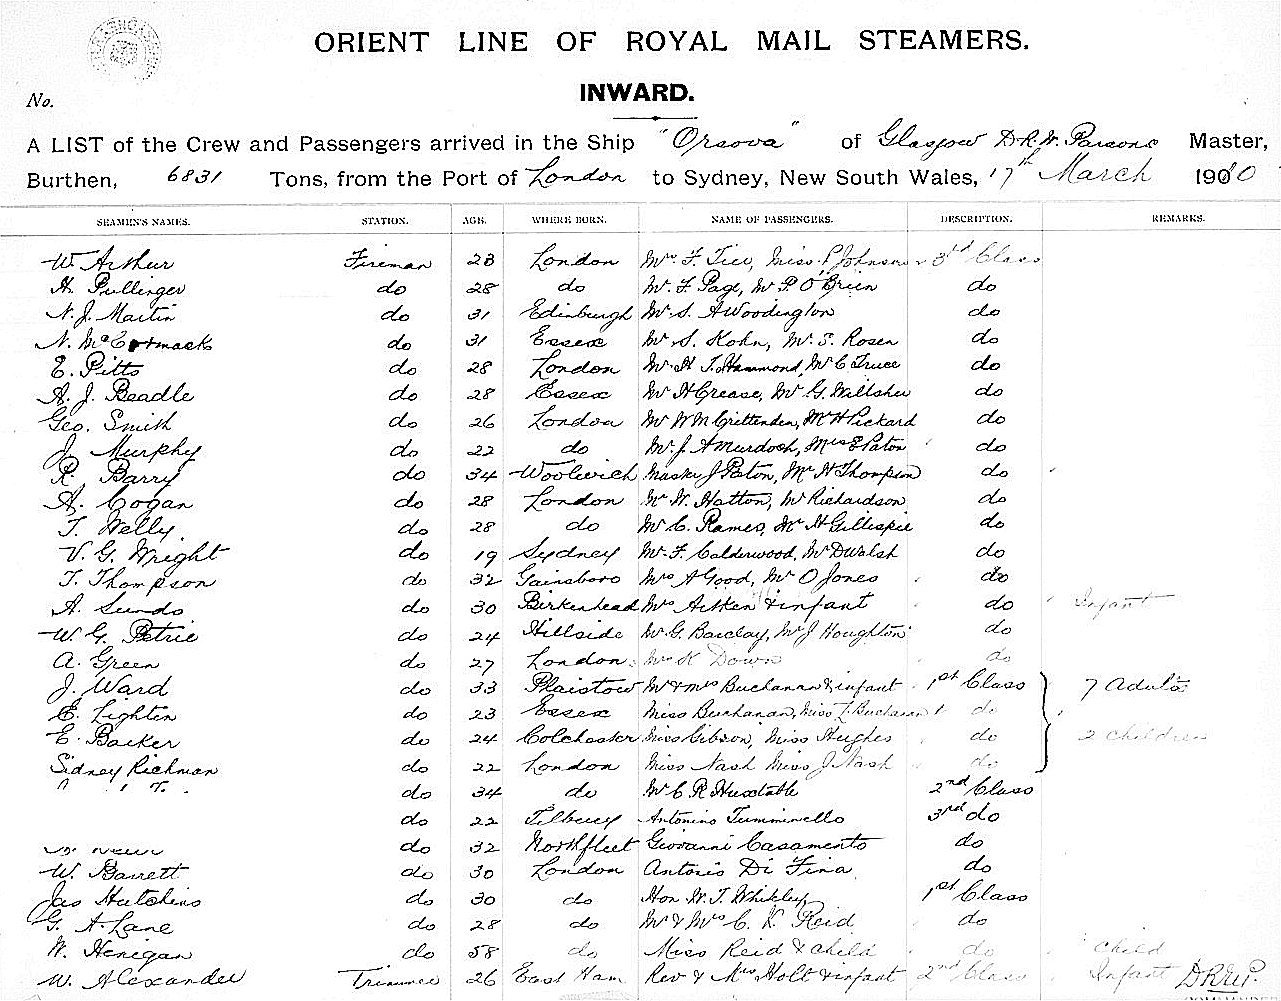 ORIENT LINE OF ROYAL MAIL STEAMERS.
INWARD.
No.
A LIST of the Crew and Passengers arrived in the Ship "Orsova" of Glasgow D.R.W. Parsons Master,
Burthen, 6831 Tons, from the Port of London to Sydney, New South Wales, 17th March 1910
SEAMEN'S NAMES. STATION. AGE. WHERE BORN. NAME OF PASSENGERS. DESCRIPTION. REMARKS.
W. Arthur Fireman 23 London Mrs F. Tice, Miss P Johnson 3rd Class
H. Pullinger do 28 do Mr F Page, Mr P. O'Brien do
N. J. Martin do 31 Edinburgh Mr S. A Woodington do
N. McCormack do 31 Essex Mr S. Kohn, Mr S. Rosen do
E. Pitts do 28 London Mr H T. Hammond, Mr C Truce do
A. J. Beadle do 28 Essex Mr H Crease, Mr G. Willsher do
Geo. Smith do 26 London Mr W M Crittenden, Mr H Pickard do
J. Murphy do 22 do Mr J. A Murdoch, Mrs E Paton do
R. Barry do 34 Woolwich Master J Paton, Mr H Thompson do
A. Cogan do 28 London Mr W. Hatton, Mr Richardson do
T. Welly do 28 do Mr C. Rames, Mr H Gillespie do
V. G. Wright do 19 Sydney Mr F Calderwood, Mr D Walsh do
T. Thompson do 32 Gainsboro Mrs A Good, Mr O Jones do
A. Sunds do 30 Birkenhead Mrs Aitken & infant do Infant
W. G. Petrie do 24 Hillside Mr G. Barclay, Mr J Houghton do
A. Green do 27 London Mrs K Down do
J. Ward do 33 Plaistow Mr & Mrs Buchanan & infant 1st Class 7 Adults
E. Lighten do 23 Essex Miss Buchanan, Miss L Buchanan do
E. Barker do 24 Colchester Miss Gibson, Miss Hughes do 2 children
Sidney Richman do 22 London Miss Nash Miss J Nash do
do 34 do Mr C R Huxtable 2nd Class
do 22 Tilbury Antonino Tumminello 3rd do
do 32 Northfleet Giovanni Casamento do
W. Barrett do 30 London Antonio Di Fina do
Jas Hutchins do 30 do Hon W. T. Whikley 1st Class
G. A. Lane do 28 do Mr & Mrs C. V. Reid do
W. Henigan do 58 do Miss Reid & child do Child
W. Alexander Trimmer 26 East Ham Rev & Mrs Holt & infant 2nd Class Infant